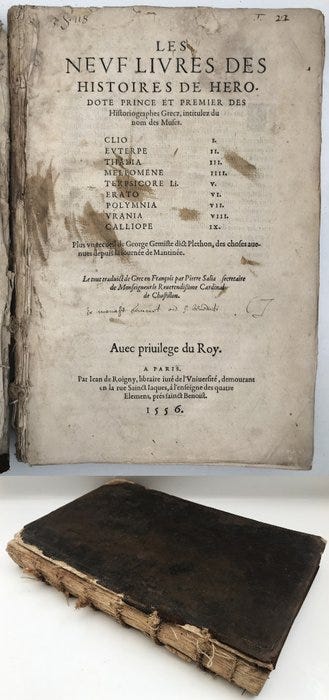 LES
NEVF LIVRES DES
HISTOIRES DE HERO-
DOTE PRINCE ET PREMIER DES
Historiographes Grecz, intitulez du
nom des Muses.
CLIO I.
EVTERPE II.
THALIA III.
MELPOMENE IIII.
TERPSICORE Li. V.
ERATO VI.
POLYMNIA VII.
VRANIA VIII.
CALLIOPE IX.
Plus vn recueil de George Gemiste dict Plethon, des choses aue-
nues depuis la iournée de Mantinée.
Le tout traduict de Grec en François par Pierre Saliat secretaire
de Monseigneur le Reuerendissime Cardinal
de Chastillon.
Auec priuilege du Roy.
A PARIS.
Par Iean de Roigny, libraire iuré de l'Vniuersité, demourant
en la rue Sainct Iaques, à l'enseigne des quatre
Elemens, prés sainct Benoist.
1556.